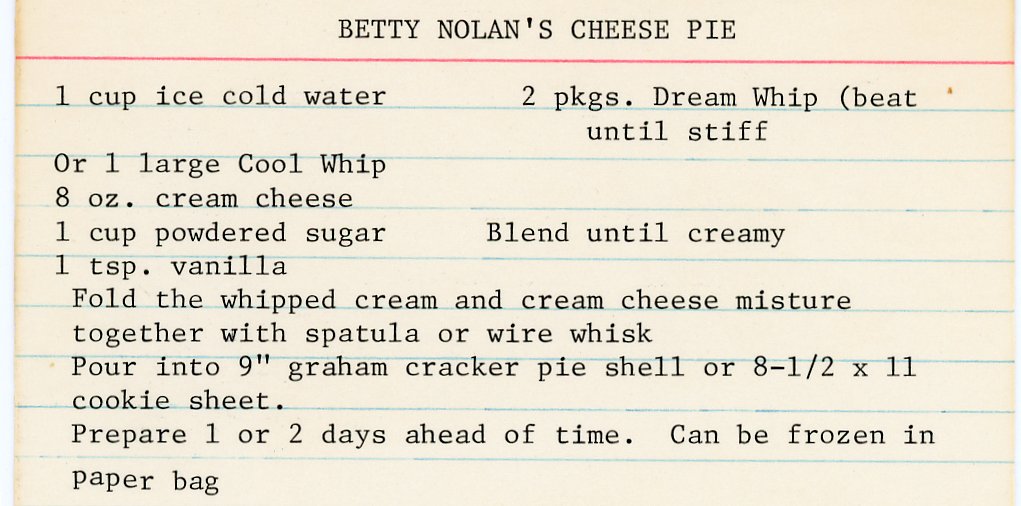 BETTY NOLAN'S CHEESE PIE
1 cup ice cold water 2 pkgs. Dream Whip (beat
until stiff
Or 1 large Cool Whip
8 oz. cream cheese
1 cup powdered sugar Blend until creamy
1 tsp. vanilla
Fold the whipped cream and cream cheese misture
together with spatula or wire whisk
Pour into 9" graham cracker pie shell or 8-1/2 x 11
cookie sheet.
Prepare 1 or 2 days ahead of time. Can be frozen in
paper bag